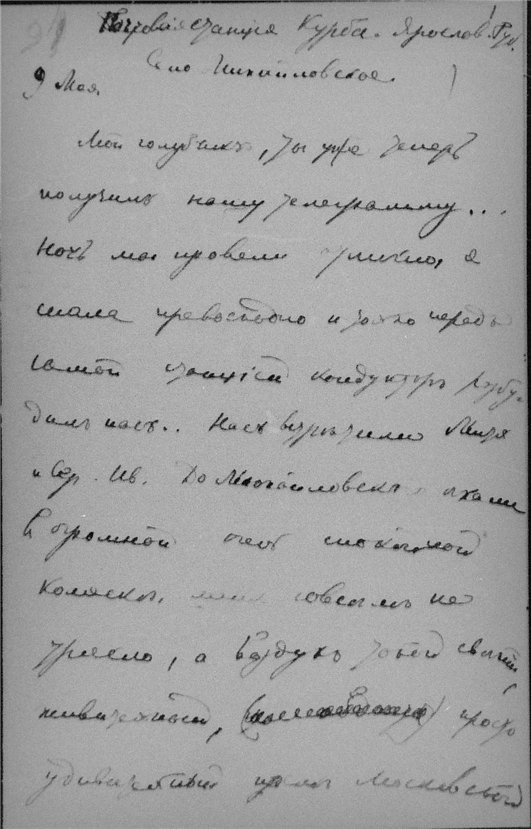 Почтовая станция Курба. Ярослав. Губ.
Село Михайловское
9 Мая.
Мой голубчикъ, ты уже теперь
получилъ нашу телеграмму...
Ночь мы провели отлично, я
спала превосходно и только передъ
самой станціей кондукторъ разбу-
дилъ насъ.. Насъ встрѣтили Митя
и Сер. Ив. До Михайловскаго ѣхали
въ огромной очень спокойной
коляскѣ, меня совсѣмъ не
трясло, а воздухъ такой свѣжій,
живительный, просто
удивительный послѣ Московскаго